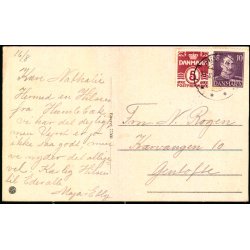 16/8
Kære Nathalie
Herned en Hilsen
fra Humlebæk,
vi har det dejligt
men Vejret er jo
ikke saa godt, men
vi nyder det allige
vel. Kærlig Hilsen
til Eder alle
Maja - Elly
DANMARK
5
DANMARK
10
Frn N. Rogen
Kærvangen 10
Gentofte